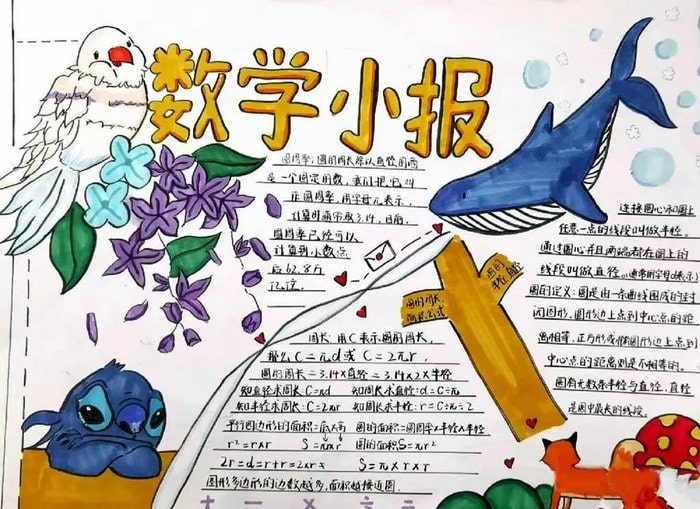 数学小报
圆周率:圆的周长除以直径的商
是一个固定的数,我们把它叫
作圆周率,用字母π表示,
计算时通常取3.14,目前,
圆周率已经可以
计算到小数点
后62.8万
亿位.
连接圆心和圆上
任意一点的线段叫做半径.
通过圆心并且两端都在圆上的
线段叫做直径
圆的定义:圆是由一条曲线围成的
闭图形,圆形边上点到中心点的距
离相等,正方形或椭圆形边上点到
中心点的距离则是不相等的.
圆有无数条半径与直径,直径
是圆中最长的线段.
圆的
圆的周长
周长:用C表示圆的周长,
那么C=πd或C=2πr,
圆的周长=3.14×直径=3.14×2×半径
知直径求周长:C=πd 知周长求直径:d=C÷π
知半径求周长:C=2πr 知周长求半径:r=C÷π÷2
平行四边形的面积=底×高 圆的面积=圆周率×半径×半径
r²=r×r S=πr×r 圆的面积S=πr²
2r=d=r+r=2×r S=π×r×r
圆形多边形的边数越多,面积越接近圆.
+ - × ÷ =